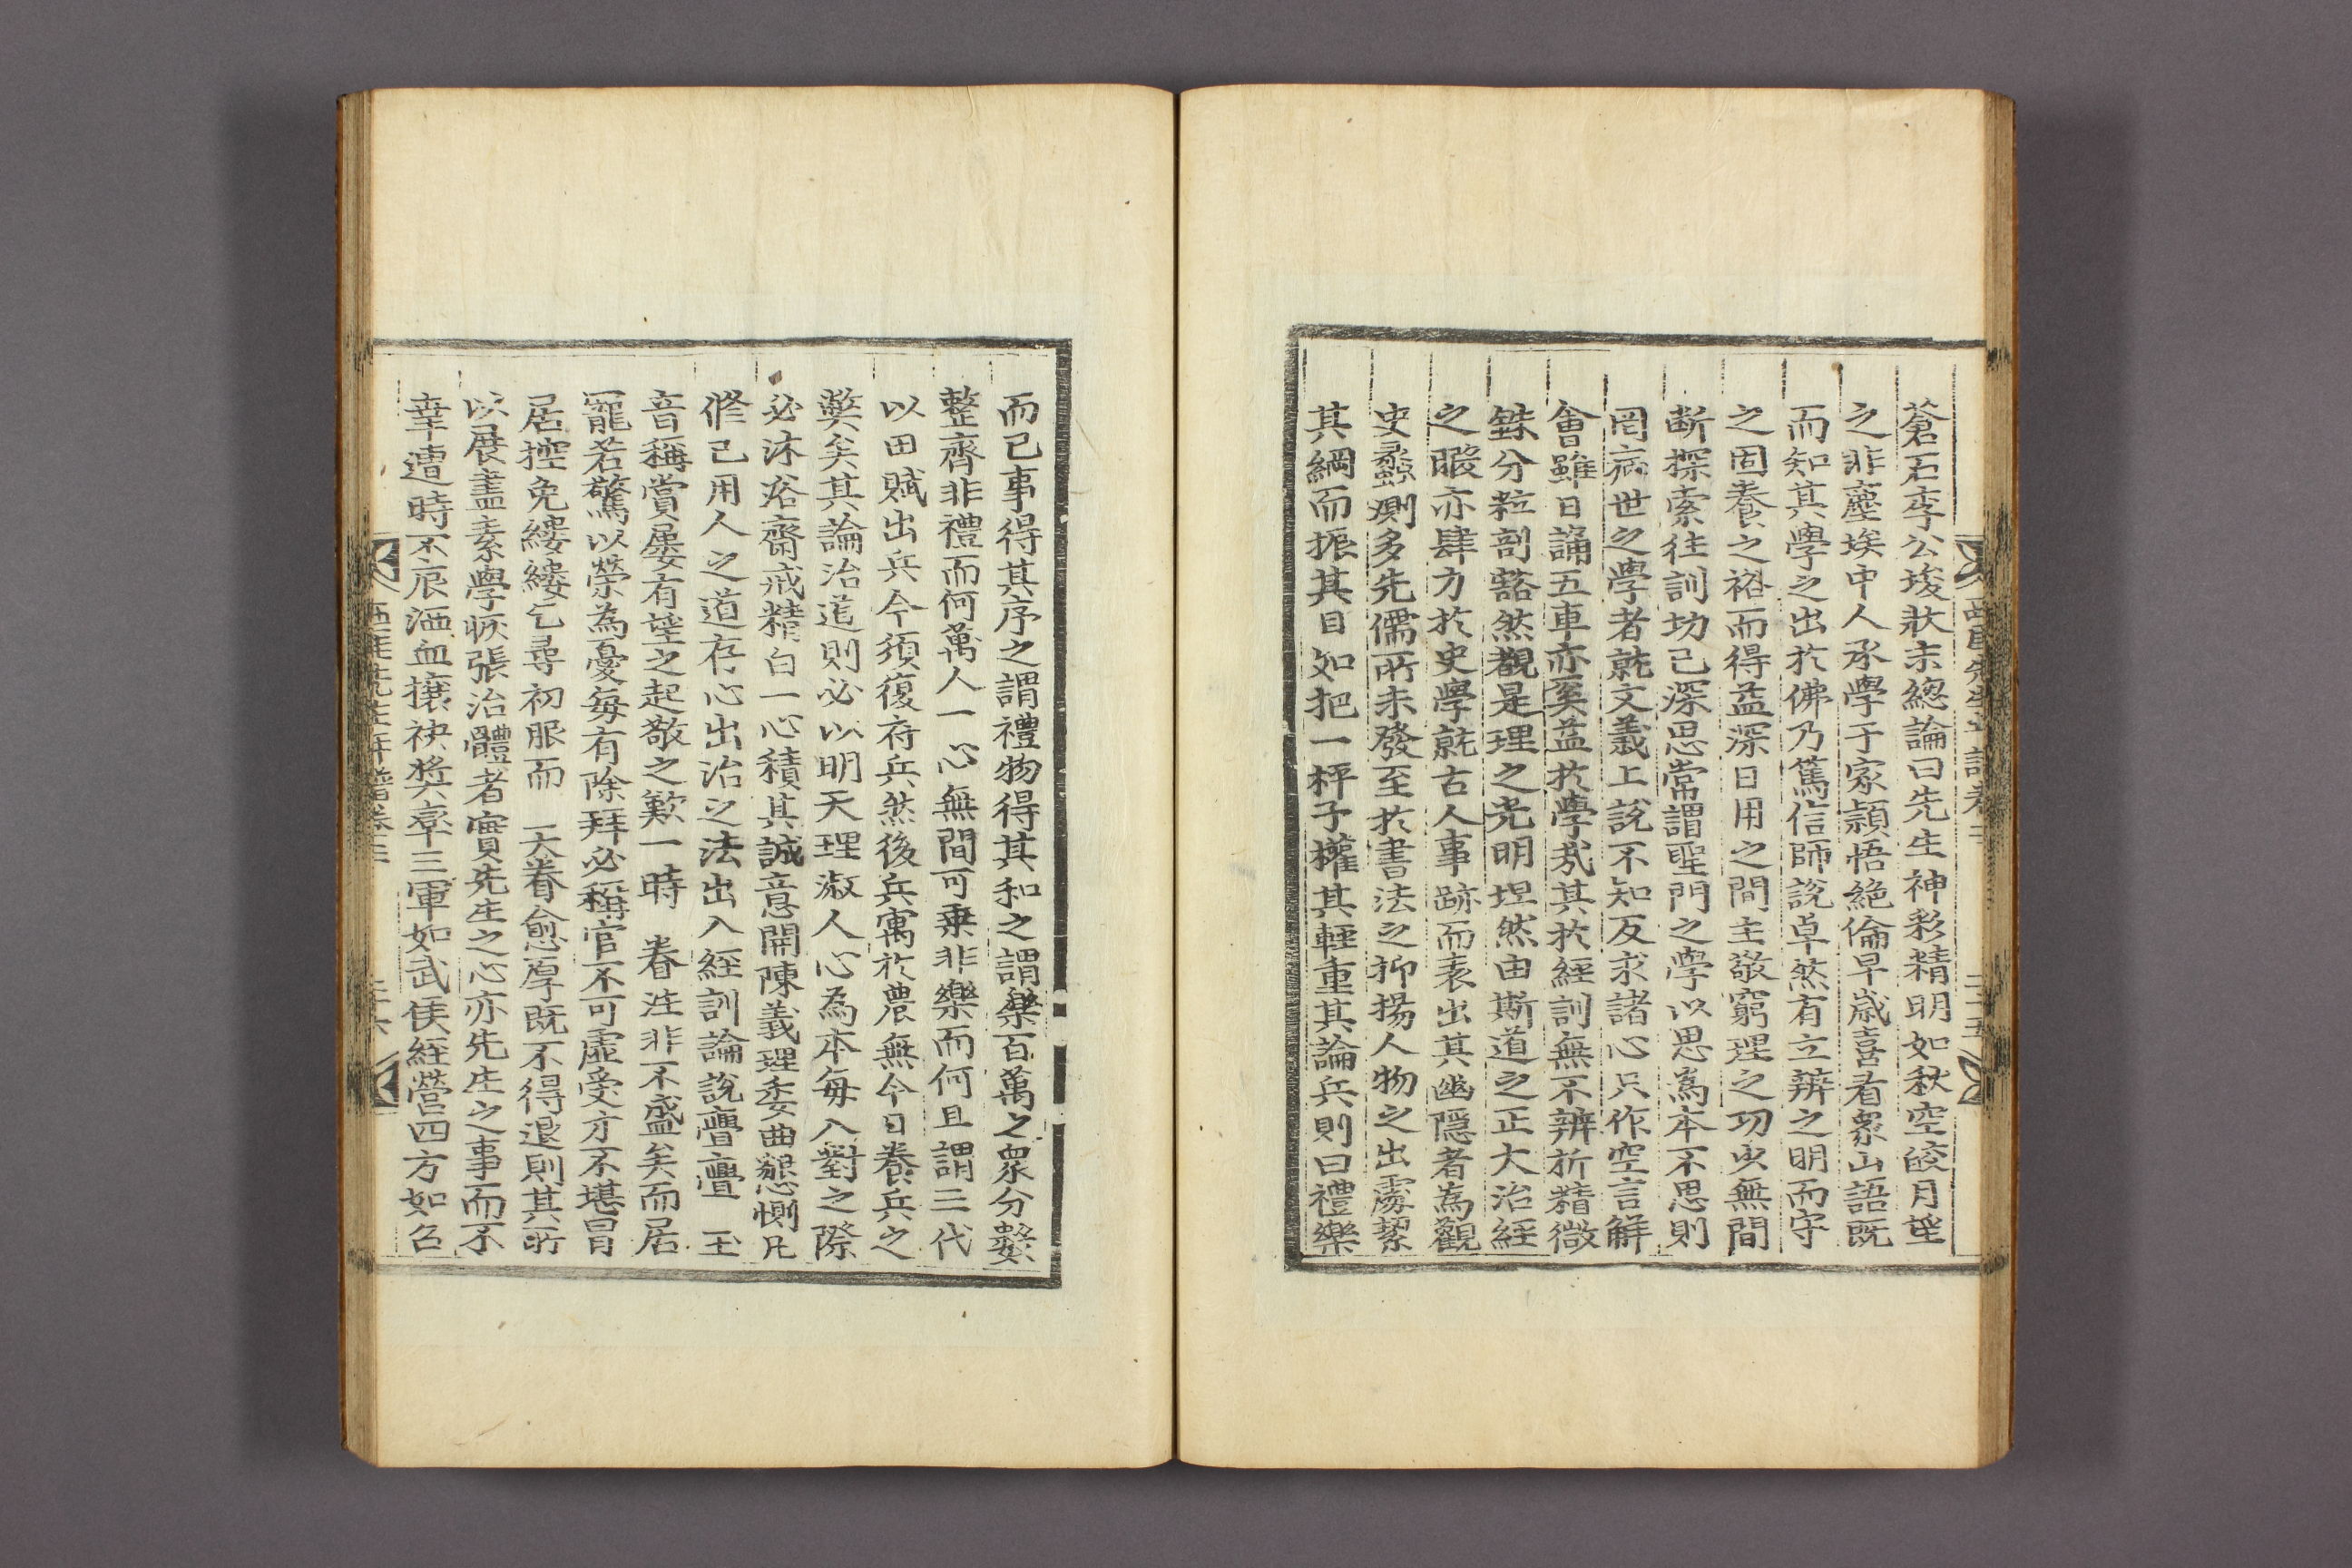 蒼石李公埈狀末總論曰先生神彩精明如秋空皎月望
之非塵埃中人承學于家穎悟絶倫早歳喜看象山語既
而知其學之出於佛乃篤信師說卓然有立辨之明而守
之固養之裕而得益深日用之間主敬窮理之功尖無間
断探索往訓切己深思常謂聖門之學以思為本不思則
罔病世之學者就文義上說不知反求諸心只作空言解
會雖日誦五車亦奚益於學㦲其於經訓無不辨析精微
銖分粒剖豁然觀是理之光明坦然由斯道之正大治經
之暇亦肆力於史學就古人事跡而表出其幽隱者為觀
史蠡測多先儒所未發至於書法之抑揚人物之出處絜
其綱而振其目如把一枰子權其輕重其論兵則曰禮樂
而已事得其序之謂禮物得其和之謂樂百萬之衆分數
整齊非禮而何萬人一心無間可乗非樂而何且謂三代
以田賦出兵今須復府兵然後兵寓於農無今日養兵之
獘矣其論治道則必以明天理淑人心為本每入對之際
必沐浴齋戒精白一心積其誠意開陳義理委曲懇惻凡
修己用人之道存心出治之法出入經訓論說亹亹　玉
音稱賞屢有望之起敬之歎一時　眷注非不盛矣而居
寵若驚以榮為憂每有除拜必稱官不可虛受才不堪冒
居控免縷縷乞尋初服而　天眷愈厚既不得退則其所
以展盡素學恢張治體者實先生之心亦先生之事而不
幸遭時不辰洒血攘袂奬率三軍如武侯經營四方如召
西厓先生年譜卷三
二十六